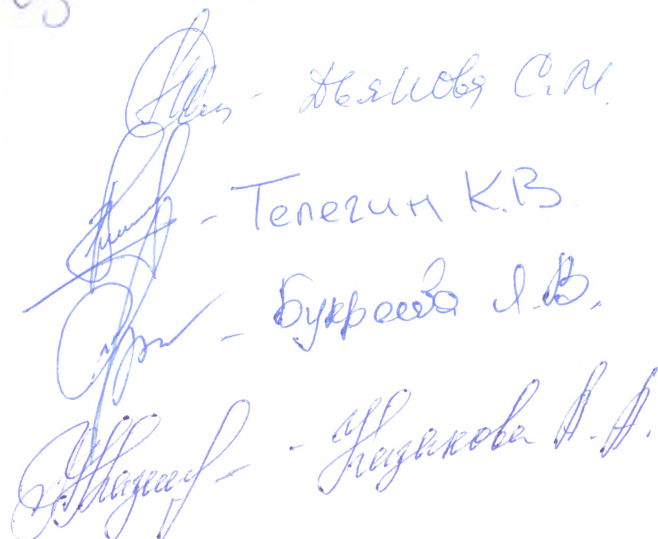 - Дьякова С.М.
- Телегин К.В
- Букреева Л.В.
- Казакова А.А.